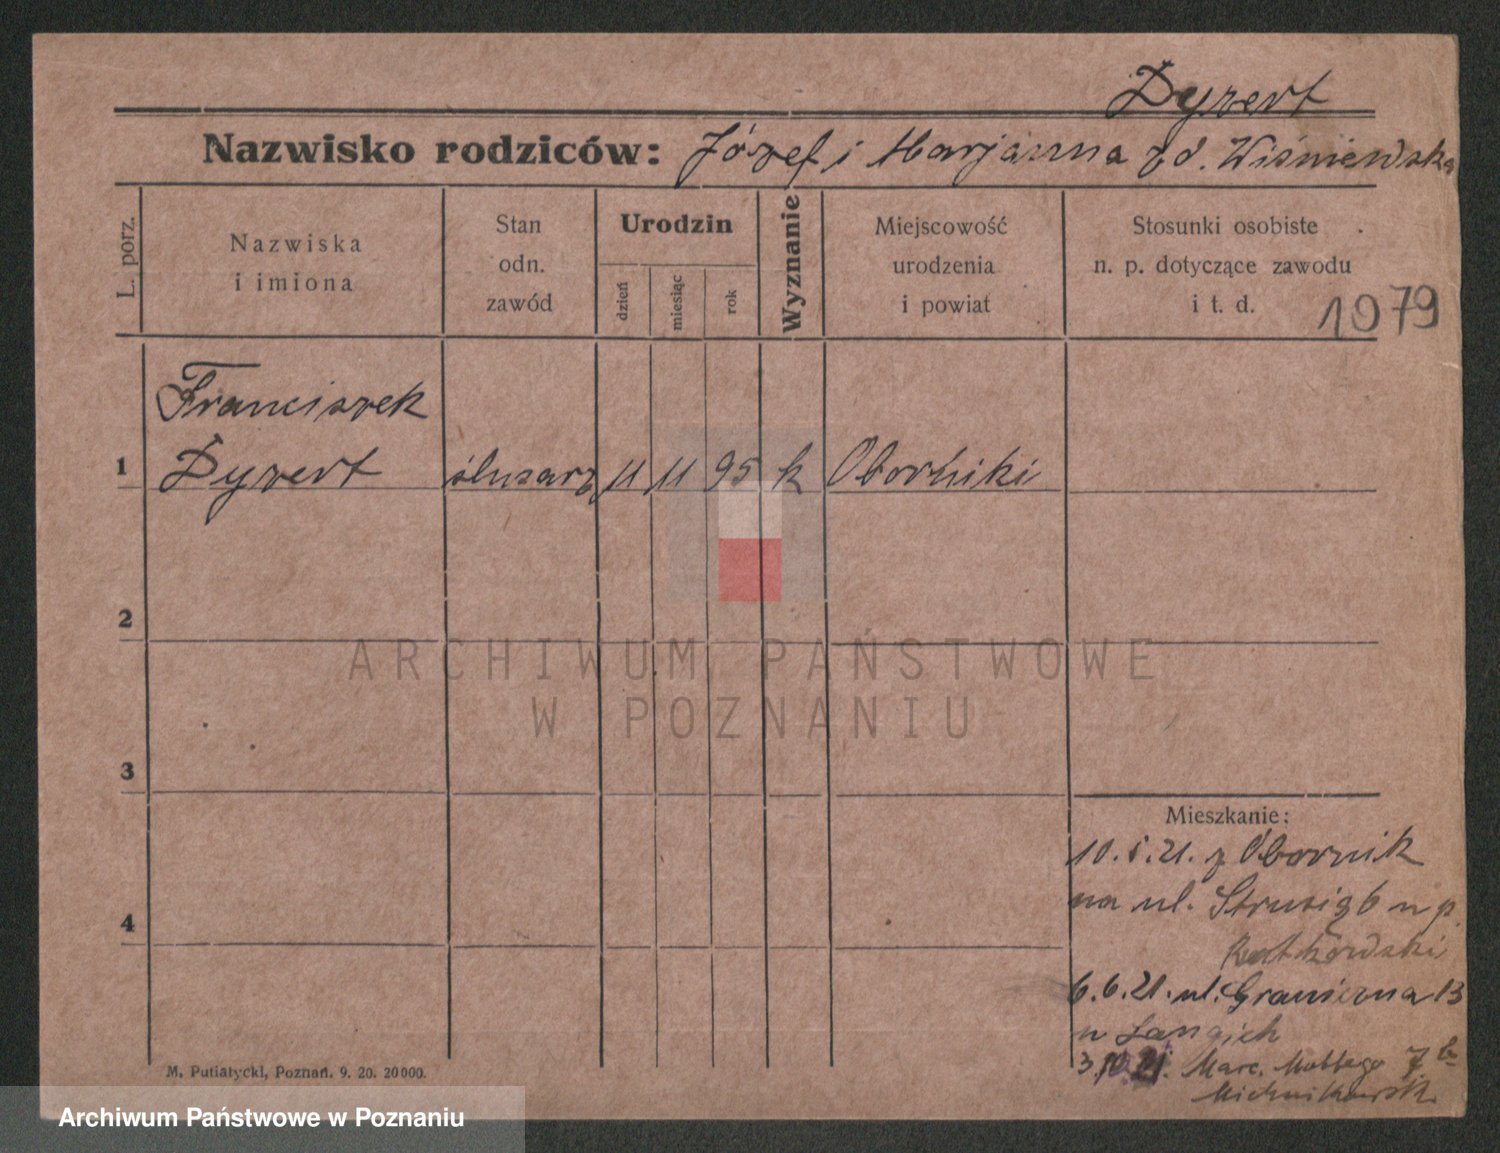 Dyzert
Nazwisko rodziców: Józef i Marjanna z d. Wiśniewska
L. porz.
Nazwiska
i imiona
Stan
odn.
zawód
Urodzin
dzień
miesiąc
rok
Wyznanie
Miejscowość
urodzenia
i powiat
Stosunki osobiste
n. p. dotyczące zawodu
i t. d.
1079
Franciszek
1 Dyzert ślusarz 11 11 95 k Oborniki
2
3
4
ARCHIWUM PAŃSTWOWE
W POZNANIU
Mieszkanie:
10.1.21. z Obornik
na ul. Strusią 6 u p.
6.6.21. ul. Graniczna 13
u
3.10.21. Marc. Mottego 7
M. Putiatycki, Poznań. 9. 20. 20000.
Archiwum Państwowe w Poznaniu